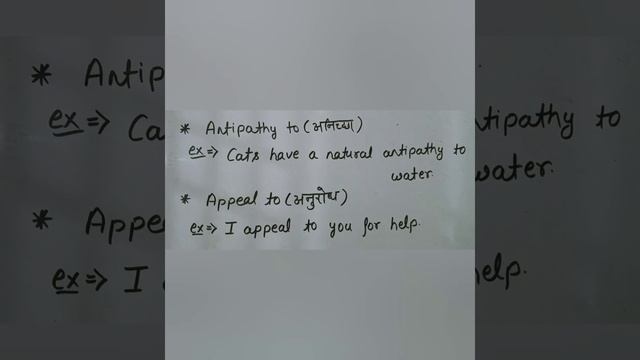 * Antipathy to (अनिच्छा)
ex⇒ Cats have a natural antipathy to
water.
* Appeal to (अनुरोध)
ex⇒ I appeal to you for help.